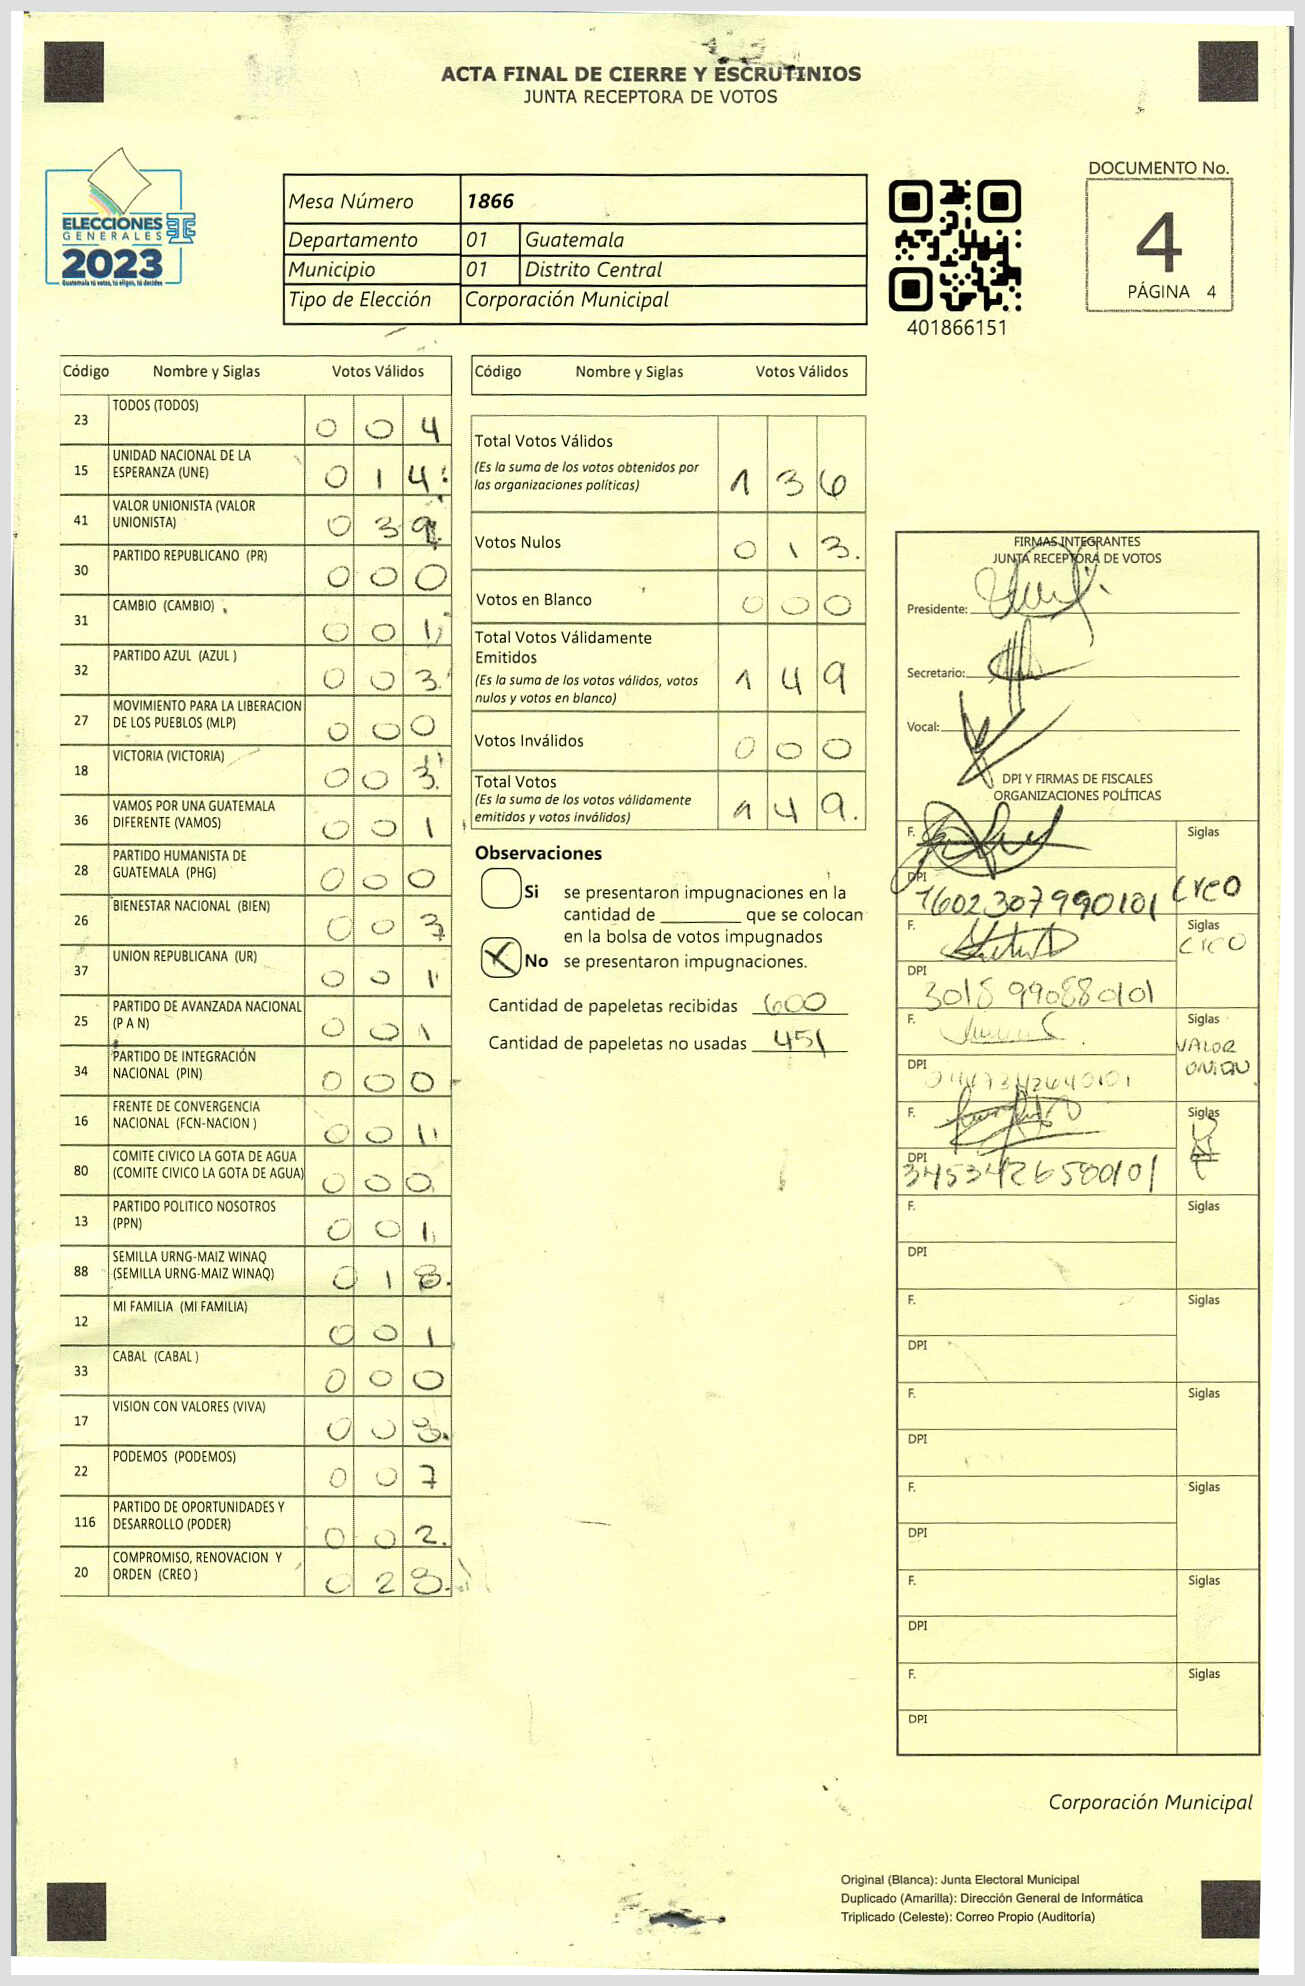 ACTA FINAL DE CIERRE Y ESCRUTINIOS
JUNTA RECEPTORA DE VOTOS
ELECCIONES
GENERALES
2023
Guatemala tú votas, tú eliges, tú decides
Mesa Número 1866
Departamento 01 Guatemala
Municipio 01 Distrito Central
Tipo de Elección Corporación Municipal
401866151
DOCUMENTO No.
4
PÁGINA 4
Código Nombre y Siglas Votos Válidos
23 TODOS (TODOS) 0 0 4
15 UNIDAD NACIONAL DE LA
ESPERANZA (UNE) 0 1 4
41 VALOR UNIONISTA (VALOR
UNIONISTA) 0 3 9
30 PARTIDO REPUBLICANO (PR) 0 0 0
31 CAMBIO (CAMBIO) 0 0 1
32 PARTIDO AZUL (AZUL ) 0 0 3
27 MOVIMIENTO PARA LA LIBERACION
DE LOS PUEBLOS (MLP) 0 0 0
18 VICTORIA (VICTORIA) 0 0 3
36 VAMOS POR UNA GUATEMALA
DIFERENTE (VAMOS) 0 0 1
28 PARTIDO HUMANISTA DE
GUATEMALA (PHG) 0 0 0
26 BIENESTAR NACIONAL (BIEN) 0 0 7
37 UNION REPUBLICANA (UR) 0 0 1
25 PARTIDO DE AVANZADA NACIONAL
(P A N) 0 0 1
34 PARTIDO DE INTEGRACIÓN
NACIONAL (PIN) 0 0 0
16 FRENTE DE CONVERGENCIA
NACIONAL (FCN-NACION ) 0 0 1
80 COMITE CIVICO LA GOTA DE AGUA
(COMITE CIVICO LA GOTA DE AGUA) 0 0 0
13 PARTIDO POLITICO NOSOTROS
(PPN) 0 0 1
88 SEMILLA URNG-MAIZ WINAQ
(SEMILLA URNG-MAIZ WINAQ) 0 1 8
12 MI FAMILIA (MI FAMILIA) 0 0 1
33 CABAL (CABAL ) 0 0 0
17 VISION CON VALORES (VIVA) 0 0
22 PODEMOS (PODEMOS) 0 0 7
116 PARTIDO DE OPORTUNIDADES Y
DESARROLLO (PODER) 0 0 2
20 COMPROMISO, RENOVACION Y
ORDEN (CREO ) 0 2 8
Código Nombre y Siglas Votos Válidos
Total Votos Válidos
(Es la suma de los votos obtenidos por
las organizaciones políticas) 1 3 6
Votos Nulos 0 1 3.
Votos en Blanco 0 0 0
Total Votos Válidamente
Emitidos
(Es la suma de los votos válidos, votos
nulos y votos en blanco) 1 4 9
Votos Inválidos 0 0 0
Total Votos
(Es la suma de los votos válidamente
emitidos y votos inválidos) 1 4 9.
Observaciones
Si se presentaron impugnaciones en la
cantidad de ________ que se colocan
en la bolsa de votos impugnados
X No se presentaron impugnaciones.
Cantidad de papeletas recibidas 600
Cantidad de papeletas no usadas 451
FIRMAS INTEGRANTES
JUNTA RECEPTORA DE VOTOS
Presidente:
Secretario:
Vocal:
DPI Y FIRMAS DE FISCALES
ORGANIZACIONES POLÍTICAS
F. Siglas
DPI 1602307990101 Creo
F. Siglas
CREO
DPI
3018990880101
F. Siglas
VALOR
UNION
DPI
F. Siglas
DPI
3453426580101
F. Siglas
DPI
F. Siglas
DPI
F. Siglas
DPI
F. Siglas
DPI
F. Siglas
DPI
F. Siglas
DPI
Corporación Municipal
Original (Blanca): Junta Electoral Municipal
Duplicado (Amarilla): Dirección General de Informática
Triplicado (Celeste): Correo Propio (Auditoría)